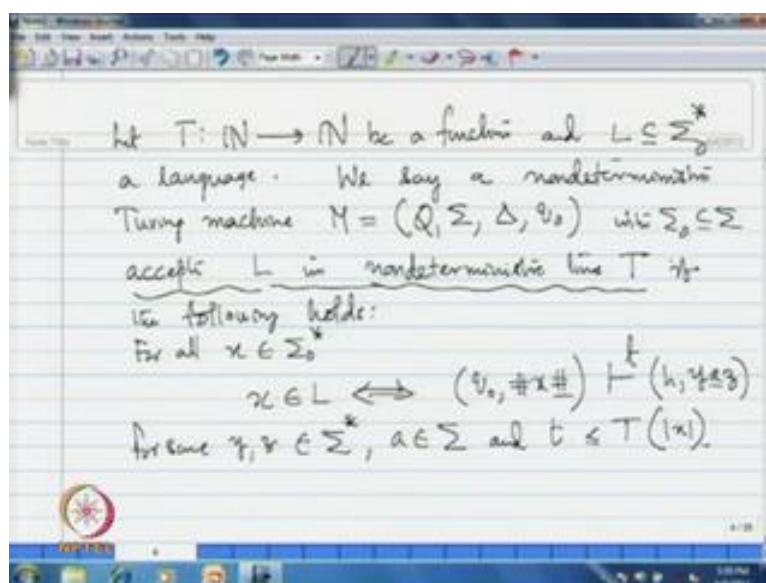 Let T: ℕ ⟶ ℕ be a function and L ⊆ Σ₀*
a language. We say a nondeterministic
Turing machine M = (Q, Σ, Δ, q₀) with Σ₀ ⊆ Σ
accepts L in nondeterministic time T if
the following holds:
For all x ∈ Σ₀*
x ∈ L ⟺ (q₀, #x#) ⊢ᵗ (h, yaz)
for some y, z ∈ Σ*, a ∈ Σ and t ≤ T(|x|).
NPTEL